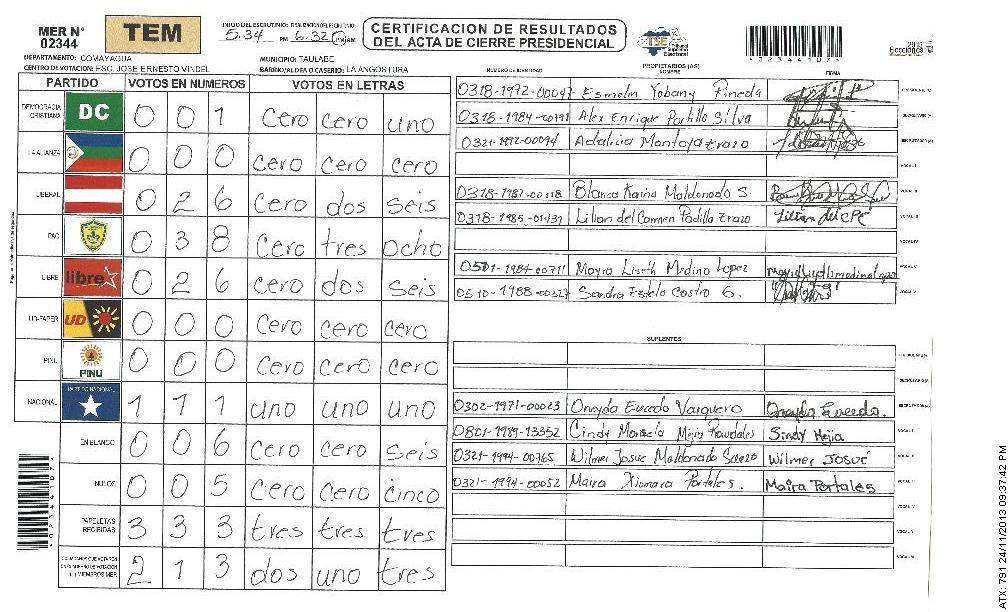 MER N° 02344
TEM
INICIO DEL ESCRUTINIO: FINALIZACION DEL ESCRUTINIO:
5:34 PM 6:32 PM AM
CERTIFICACION DE RESULTADOS
DEL ACTA DE CIERRE PRESIDENCIAL
TSE Tribunal Supremo Electoral
DEPARTAMENTO: COMAYAGUA
MUNICIPIO: TAULABE
CENTRO DE VOTACION: ESC. JOSE ERNESTO VINDEL
BARRIO/ALDEA O CASERIO: LA ANGOSTURA
PARTIDO VOTOS EN NUMEROS VOTOS EN LETRAS
DEMOCRACIA CRISTIANA DC 0 0 1 Cero Cero uno
LA ALIANZA 0 0 0 cero cero cero
LIBERAL 0 2 6 Cero dos seis
PAC 0 3 8 Cero tres ocho
LIBRE libre 0 2 6 Cero dos seis
UD-FAPER UD 0 0 0 cero cero cero
PINU PINU 0 0 0 cero cero cero
NACIONAL PARTIDO NACIONAL 1 1 1 uno uno uno
EN BLANCO 0 0 6 cero cero seis
NULOS 0 0 5 cero cero cinco
PAPELETAS RECIBIDAS 3 3 3 tres tres tres
CIUDADANOS QUE VOTARON EN CUADERNO DE VOTACION (+) MIEMBROS MER 2 1 3 dos uno tres
NUMERO DE IDENTIDAD PROPIETARIOS (AS) NOMBRE FIRMA
Yobany Pineda
Alex Enrique Portillo Silva
0321-1992-00094 Adalicia Montoya Erazo
0318-1987-00118 Blanca Karina Maldonado S.
0318-1985-01439 Lilian del Carmen Padilla Erazo
0501-1984-00711 Mayra Liseth Medina Lopez
Sandra Estela Castro G.
SUPLENTES
0302-1971-00023 Oneyda
0801-1989-13352 Cindy Mejia Sindy Mejia
0321-1994-00765 Wilmer Josue Maldonado Wilmer Josué
0321-1994-00052 Maira Xiomara Portales. Maira Portales
ATX: 791 24/11/2013 09:37:42 PM